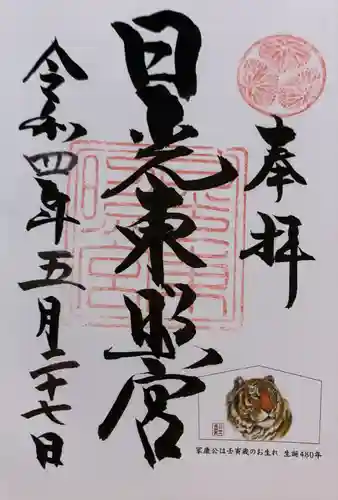 奉拝
日光東照宮
令和四年五月二十七日
家康公は壬寅歳のお生れ 生誕480年